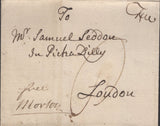 To
Mr. Samuel Seddon
In Picka Dilly
London
free
Morton